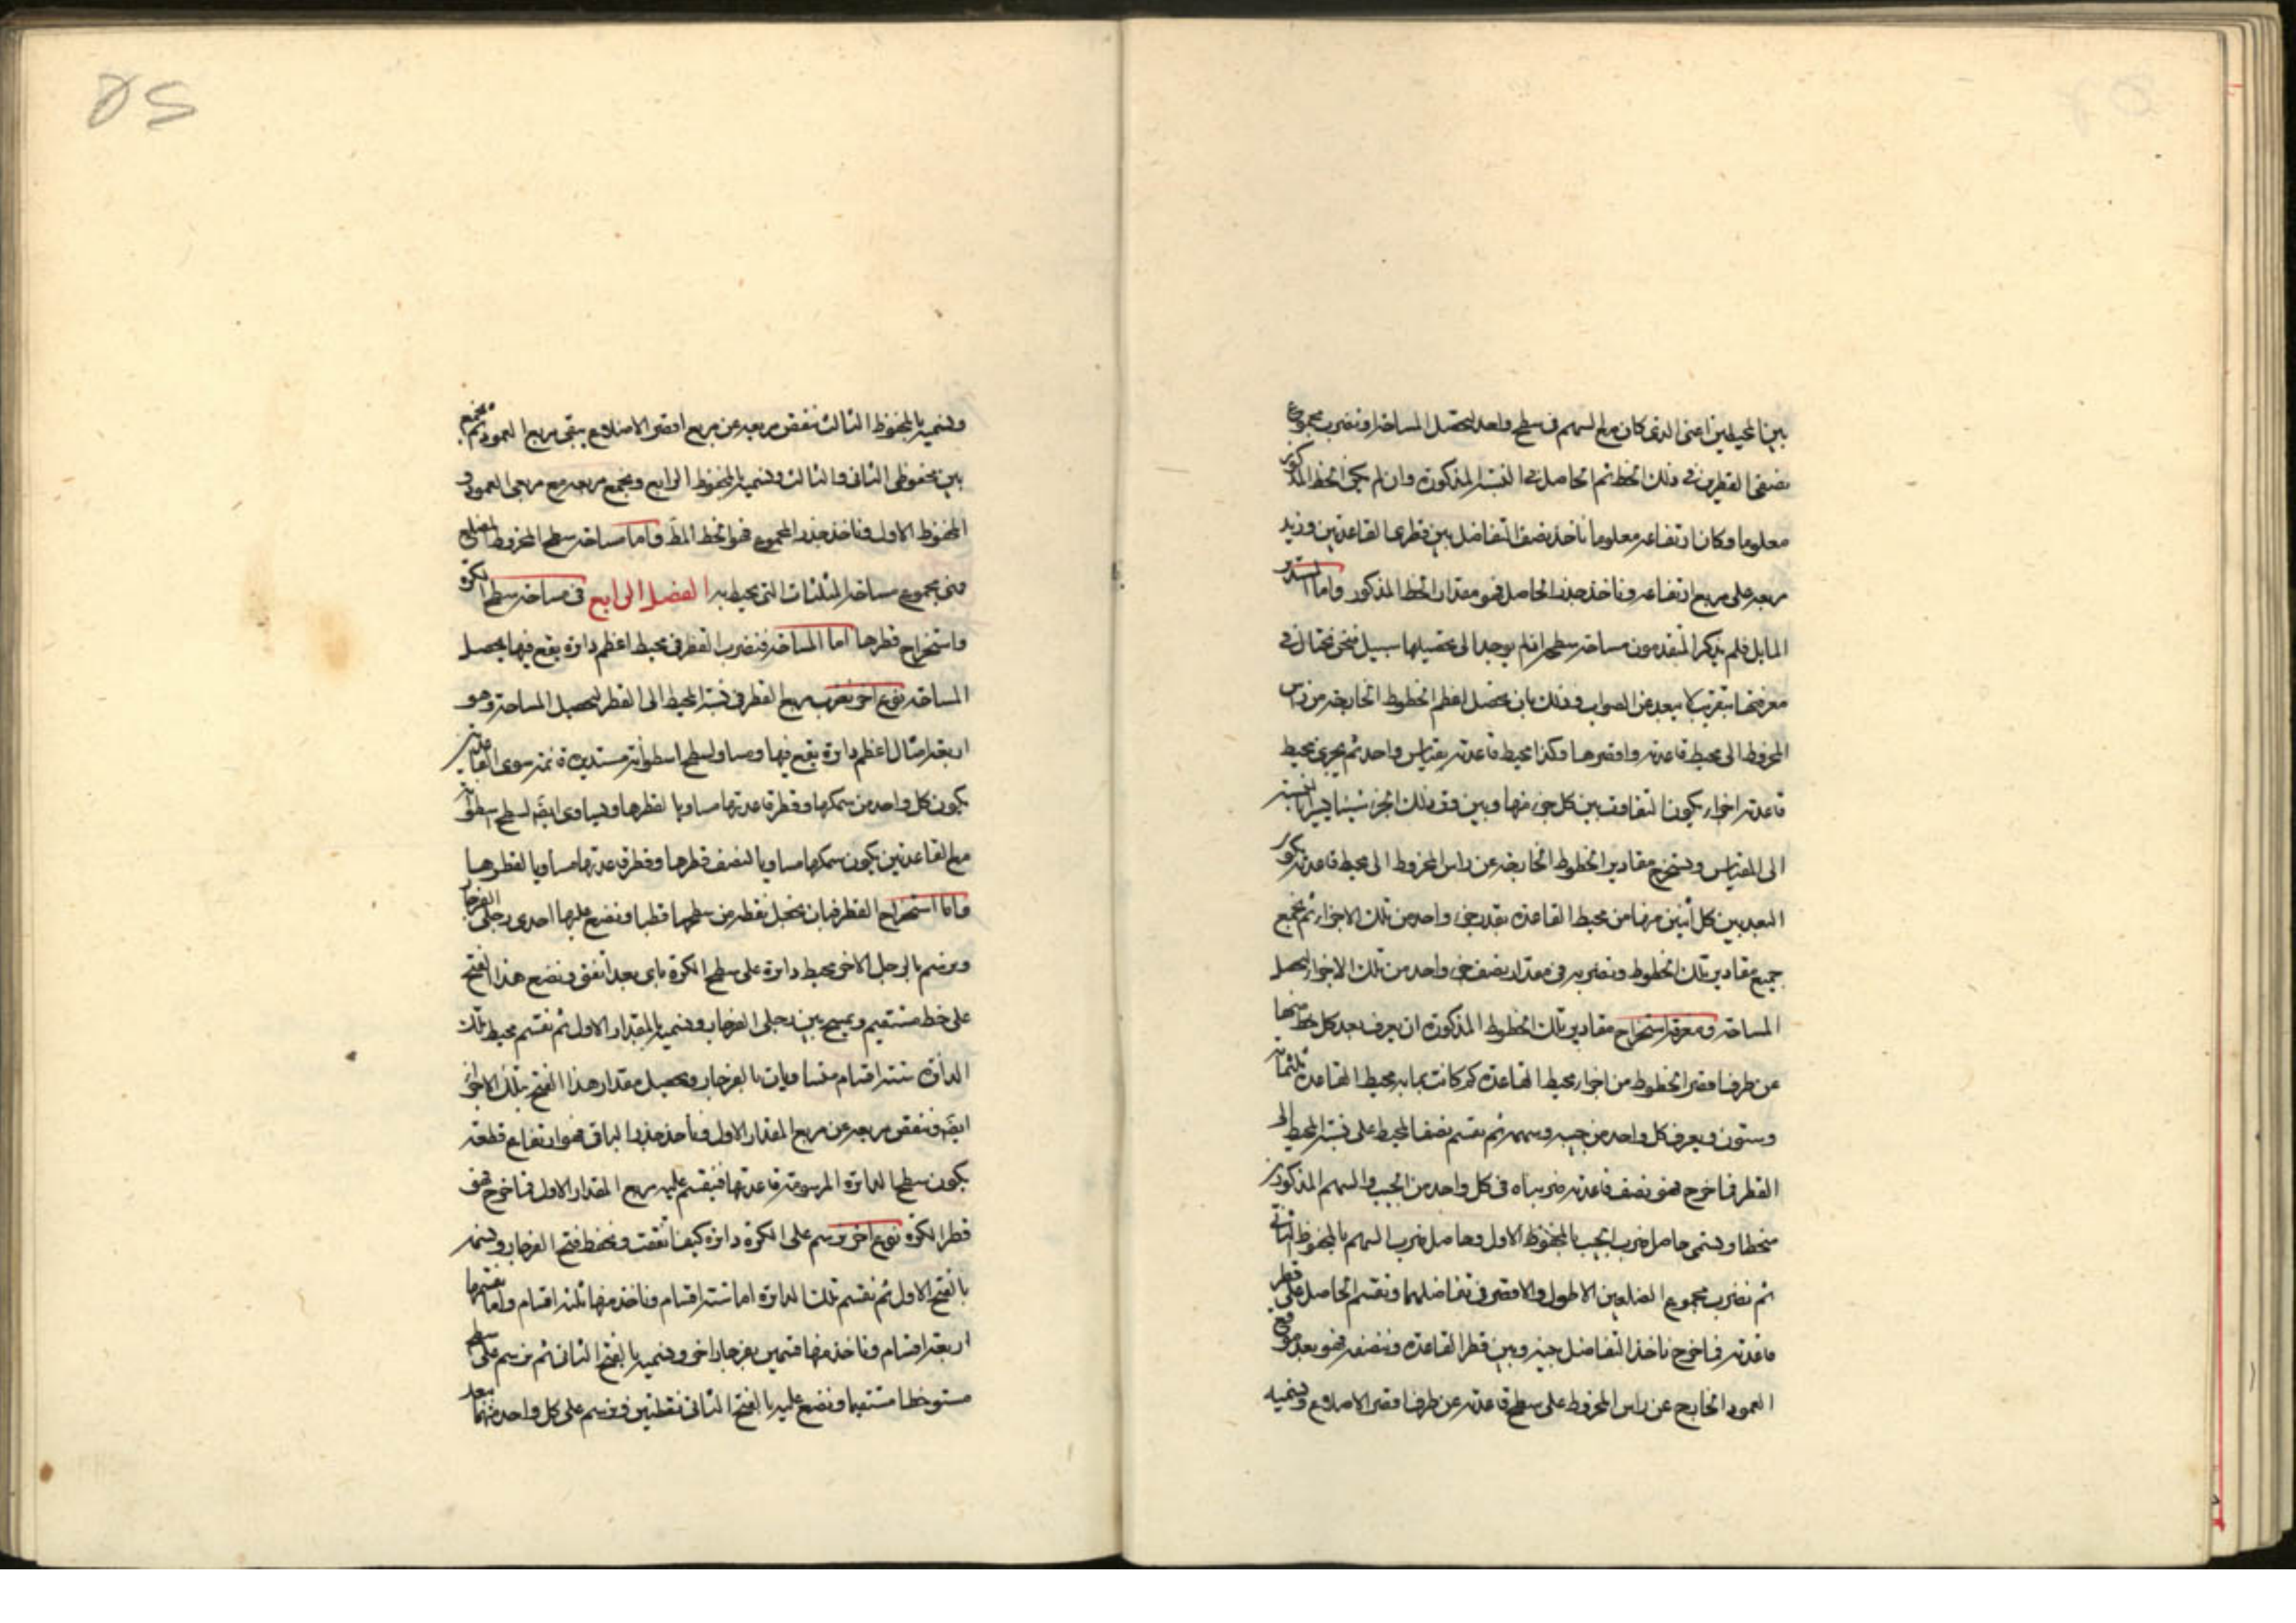 بين المحيطين اعنى الذى كان مع السهم فى سطح واحد ليحصل المساحة او نضرب مجموع
نصفى القطرين فى ذلك الخط ثم الحاصل فى النسبة المذكورة وان لم يكن الخط المذكور
معلوما وكان ارتفاعه معلوما ناخذ نصف التفاضل بين قطرى القاعدتين ونزيد
مربعه على مربع ارتفاعه وناخذ جذر الحاصل فهو مقدار الخط المذكور واما المستدير
المايل فلم يذكر المتقدمون مساحة سطحه اذ لم يوجد الى تحصيلها سبيل فنحن نحتال فى
معرفتها بتقريب لا يبعد عن الصواب وذلك بان نحصل اعظم الخطوط الخارجة من راس
المخروط الى محيط قاعدته واقصرها وكذا محيط قاعدته بمقياس واحد ثم يجزى محيط
قاعدته اجزاء يكون التفاوت بين كل جزء منها وبين وتر ذلك الجزء شيئا يسيرا بالنسبة
الى المقياس ونستخرج مقادير الخطوط الخارجة عن راس المخروط الى محيط قاعدته يكون
البعد بين كل اثنين منها من محيط القاعدة بقدر جزء واحد من تلك الاجزاء ثم نجمع
جميع مقادير تلك الخطوط ونضربه فى مقدار نصف جزء واحد من تلك الاجزاء ليحصل
المساحة ومعرفة استخراج مقادير تلك الخطوط المذكورة ان يعرف بعد كل خط منها
عن طرف اقصر الخطوط من اجزاء محيط القاعدة كم كانت بما به محيط القاعدة ثلثمائة
وستون ونعرف كل واحد من جيبه وسهمه ثم نقسم نصف المحيط على نسبة المحيط الى
القطر فما خرج فهو نصف قاعدته ضربناه فى كل واحد من الجيب والسهم المذكورين
منحطا ونسمى حاصل ضرب الجيب بالمحفوظ الاول وحاصل ضرب السهم بالمحفوظ الثانى
ثم نضرب مجموع الضلعين الاطول والاقصر فى تفاضلهما ونقسم الحاصل على قطر
قاعدته فما خرج ناخذ التفاضل بينه وبين قطر القاعدة وننصفه فهو بعد موقع
العمود الخارج عن راس المخروط على سطح قاعدته عن طرف اقصر الاضلاع ونسميه
ونسميه بالمحفوظ الثالث ننقص مربعه عن مربع اقصر الاضلاع يبقى مربع العمود ثم نجمع
بين محفوظى الثانى والثالث ونسميه بالمحفوظ الرابع ونجمع مربعه مع مربعى العمود و
المحفوظ الاول وناخذ جذر المجموع فهو الخط المط واما مساحة سطح المخروط المضلع
فهى مجموع مساحة المثلثات التى يحيط به الفصل الرابع فى مساحة سطح الكرة
واستخراج قطرها اما المساحة فنضرب القطر فى محيط اعظم دائرة يقع فيها يحصل
المساحة نوع اخر نضرب مربع القطر فى نسبة المحيط الى القطر ليحصل المساحة وهو
اربعة امثال اعظم دائرة يقع فيها ومساو لسطح اسطوانة مستديرة قائمة سوى القاعدتين
يكون كل واحد من سمكها وقطر قاعدتها مساويا لقطرها ويساوى ايضا لسطح اسطوانة
مع القاعدتين يكون سمكها مساويا لنصف قطرها وقطر قاعدتها مساويا لقطرها
واما استخراج القطر فبان نجعل نقطة من سطحها قطبا ونضع عليها احدى رجلى الفرجار
ونرسم بالرجل الاخر محيط دائرة على سطح الكرة باى بعد اتفق ونضع هذا الفتح
على خط مستقيم ونمسح بين رجلى الفرجار ونسميه بالمقدار الاول ثم نقسم محيط تلك
الدائرة ستة اقسام متساويات بالفرجار ونحصل مقدار هذا الفتح بتلك الاجزاء
ايضا وننقص مربعه عن مربع المقدار الاول وناخذ جذر الباقى فهو ارتفاع قطعة
يكون سطح الدائرة المرسومة قاعدتها فنقسم عليه مربع المقدار الاول فما خرج فهو
قطر الكرة نوع اخر نرسم على الكرة دائرة كيف اتفقت ونحفظ فتح الفرجار ونسميه
بالفتح الاول ثم نقسم تلك الدائرة اما ستة اقسام وناخذ منها ثلثة اقسام واما نقسمها
اربعة اقسام وناخذ منها قسمين بفرجار اخر ونسميه بالفتح الثانى ثم نرسم على سطح
مستو خطا مستقيما ونضع عليه بالفتح الثانى نقطتين ونرسم على كل واحد منهما ببعد